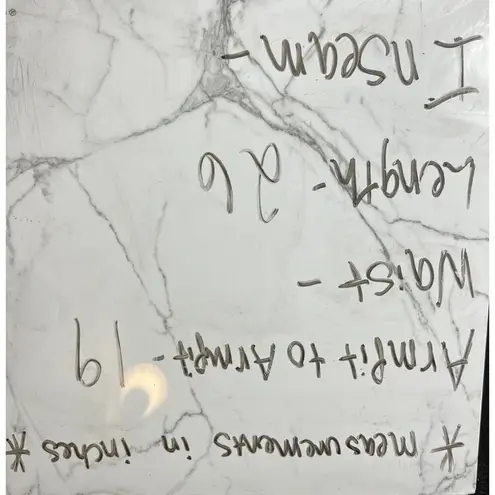 * measurements in inches *
Armpit to Armpit - 19
Waist -
Length - 26
Inseam -